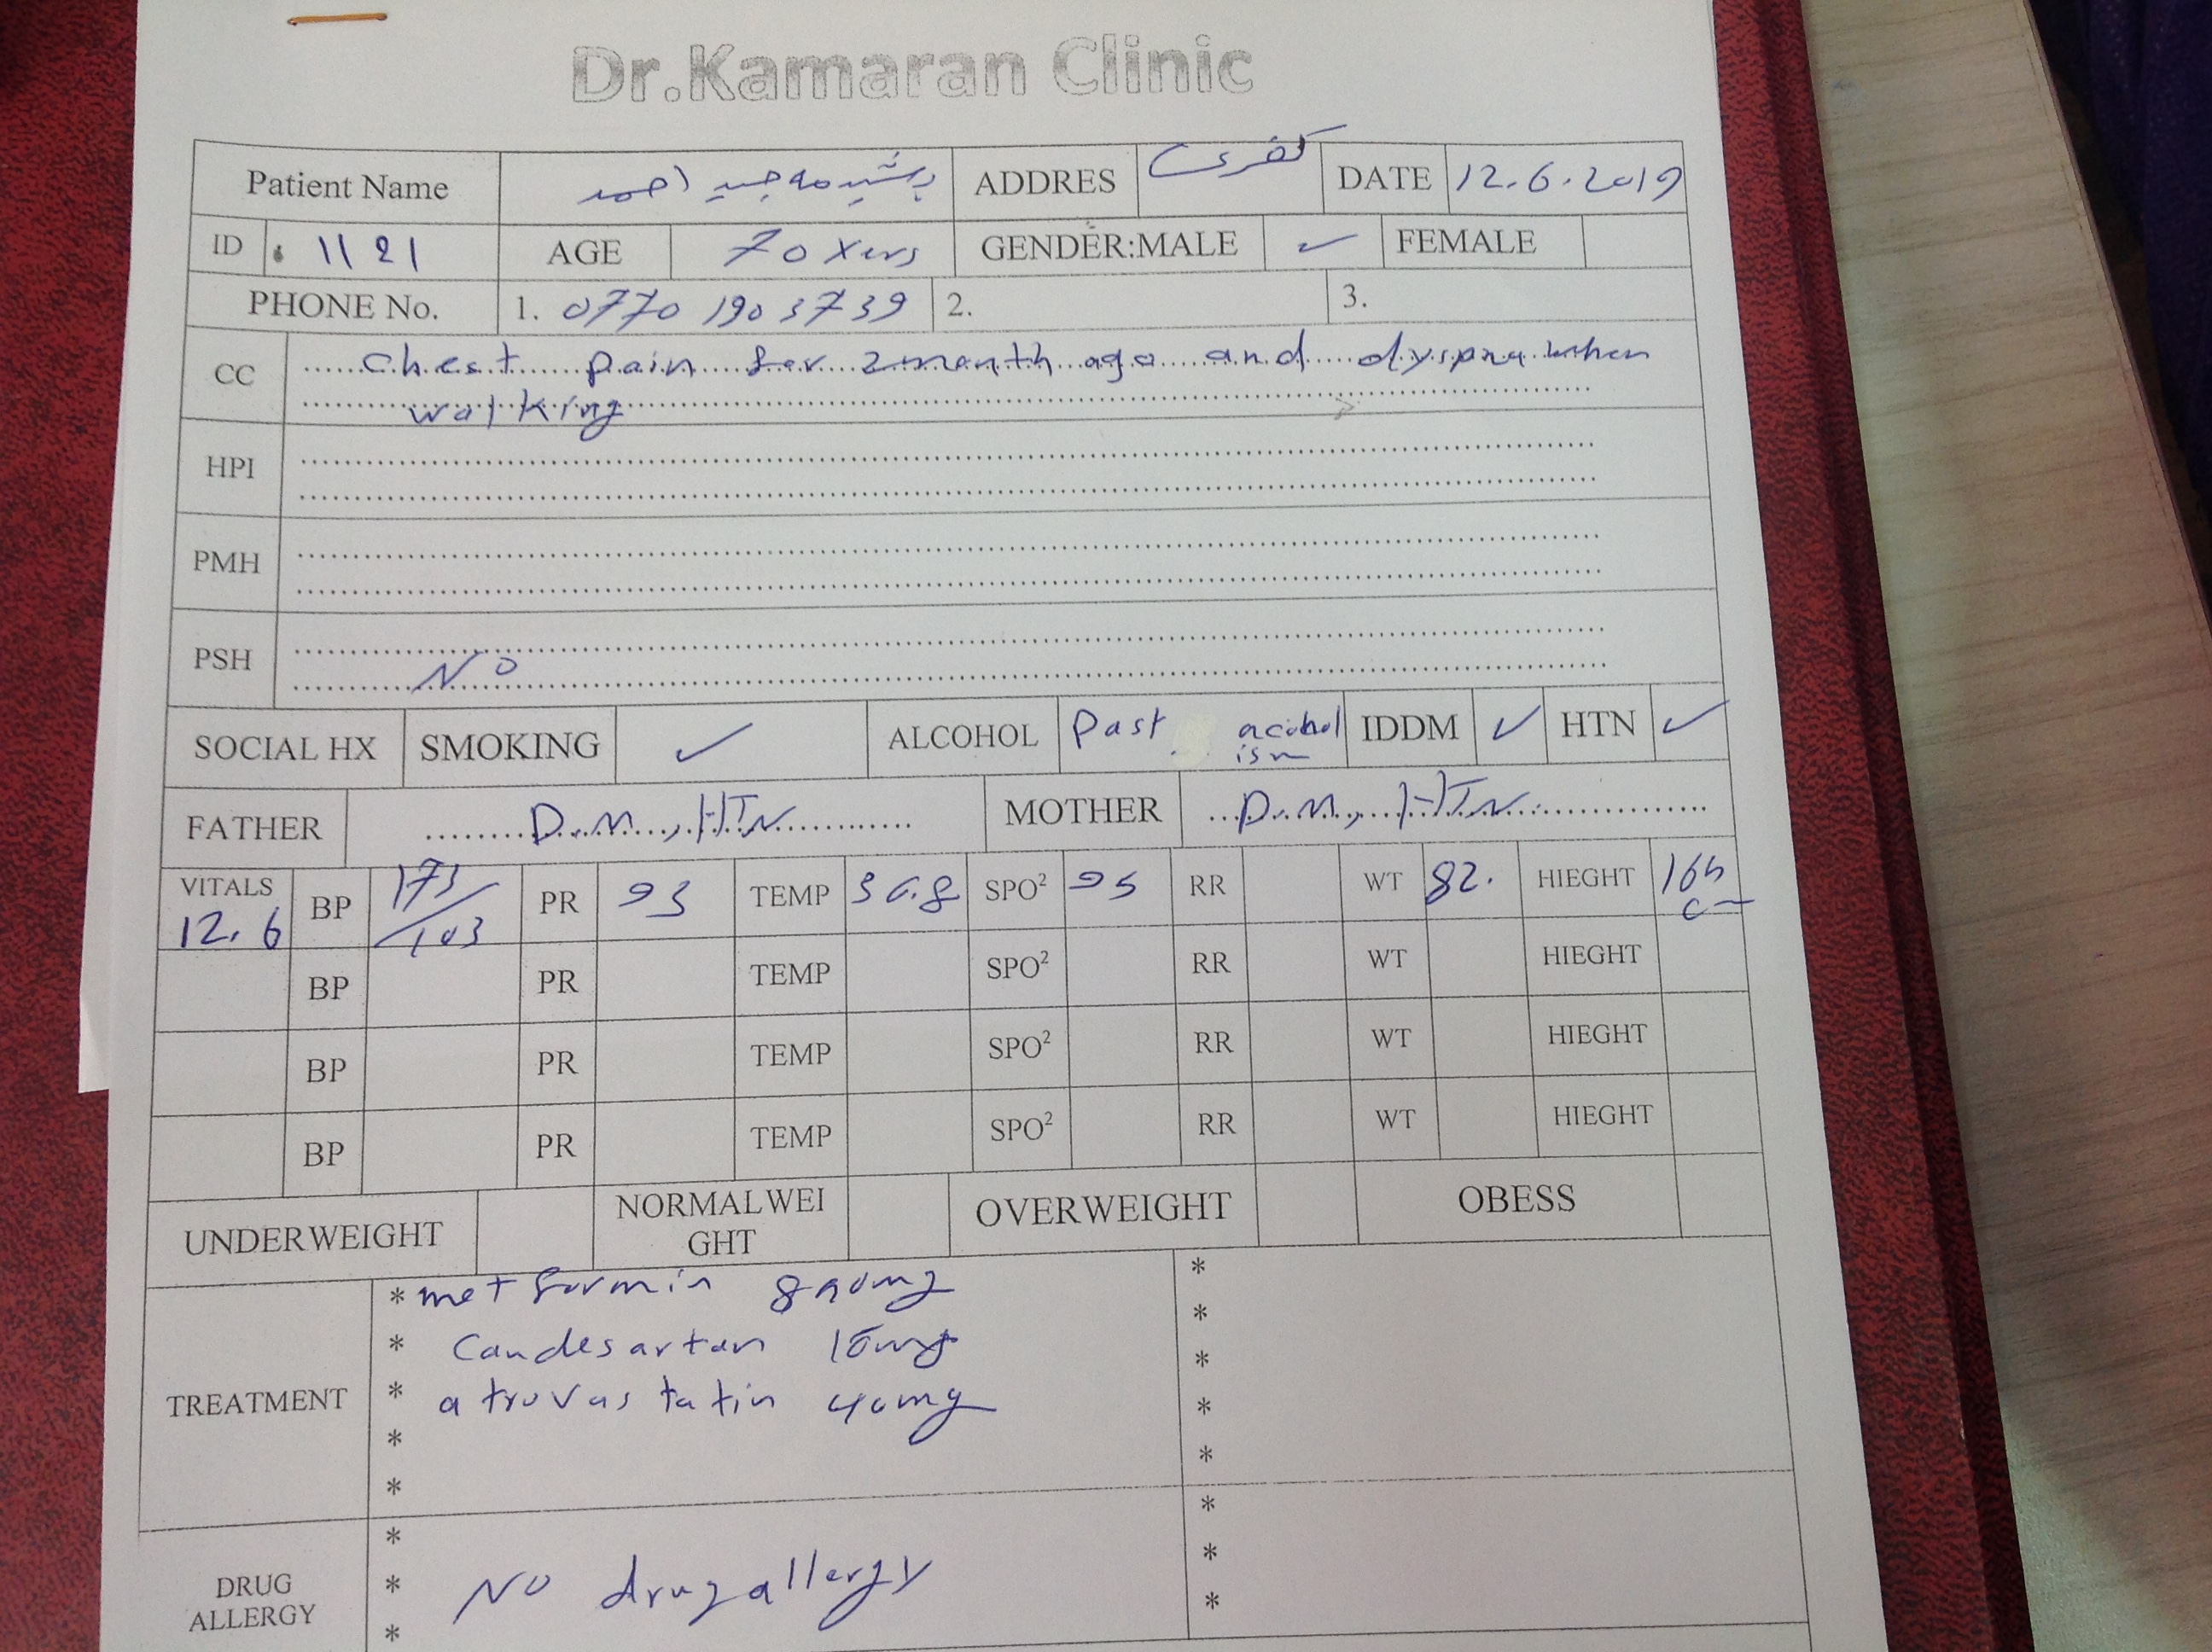 Dr.Kamaran Clinic
Patient Name احمد ADDRES كفری DATE 12.6.2019
ID 1121 AGE 70 Yers GENDER:MALE ✓ FEMALE
PHONE No. 1. 0770 190 3739 2. 3.
CC chest pain for 2 month ago and dyspnu when
walking
HPI
PMH
PSH No
SOCIAL HX SMOKING ✓ ALCOHOL Past acohol ism IDDM ✓ HTN ✓
FATHER D.M, HTN MOTHER D.M, HTN
VITALS 12.6 BP 173/103 PR 93 TEMP 36.8 SPO² 95 RR WT 82. HIEGHT
BP PR TEMP SPO² RR WT HIEGHT
BP PR TEMP SPO² RR WT HIEGHT
BP PR TEMP SPO² RR WT HIEGHT
UNDERWEIGHT NORMALWEI OVERWEIGHT OBESS
GHT
TREATMENT
* metformin *
* Candesartan *
* atrovastatin 40mg *
* *
* *
DRUG ALLERGY
* *
* No drug allergy *
* *